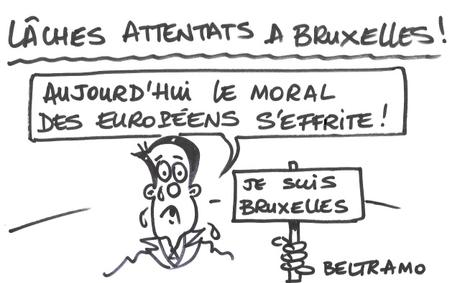 LÂCHES ATTENTATS A BRUXELLES!
AUJOURD'HUI LE MORAL
DES EUROPÉENS S'EFFRITE!
JE SUIS
BRUXELLES
BELTRAMO